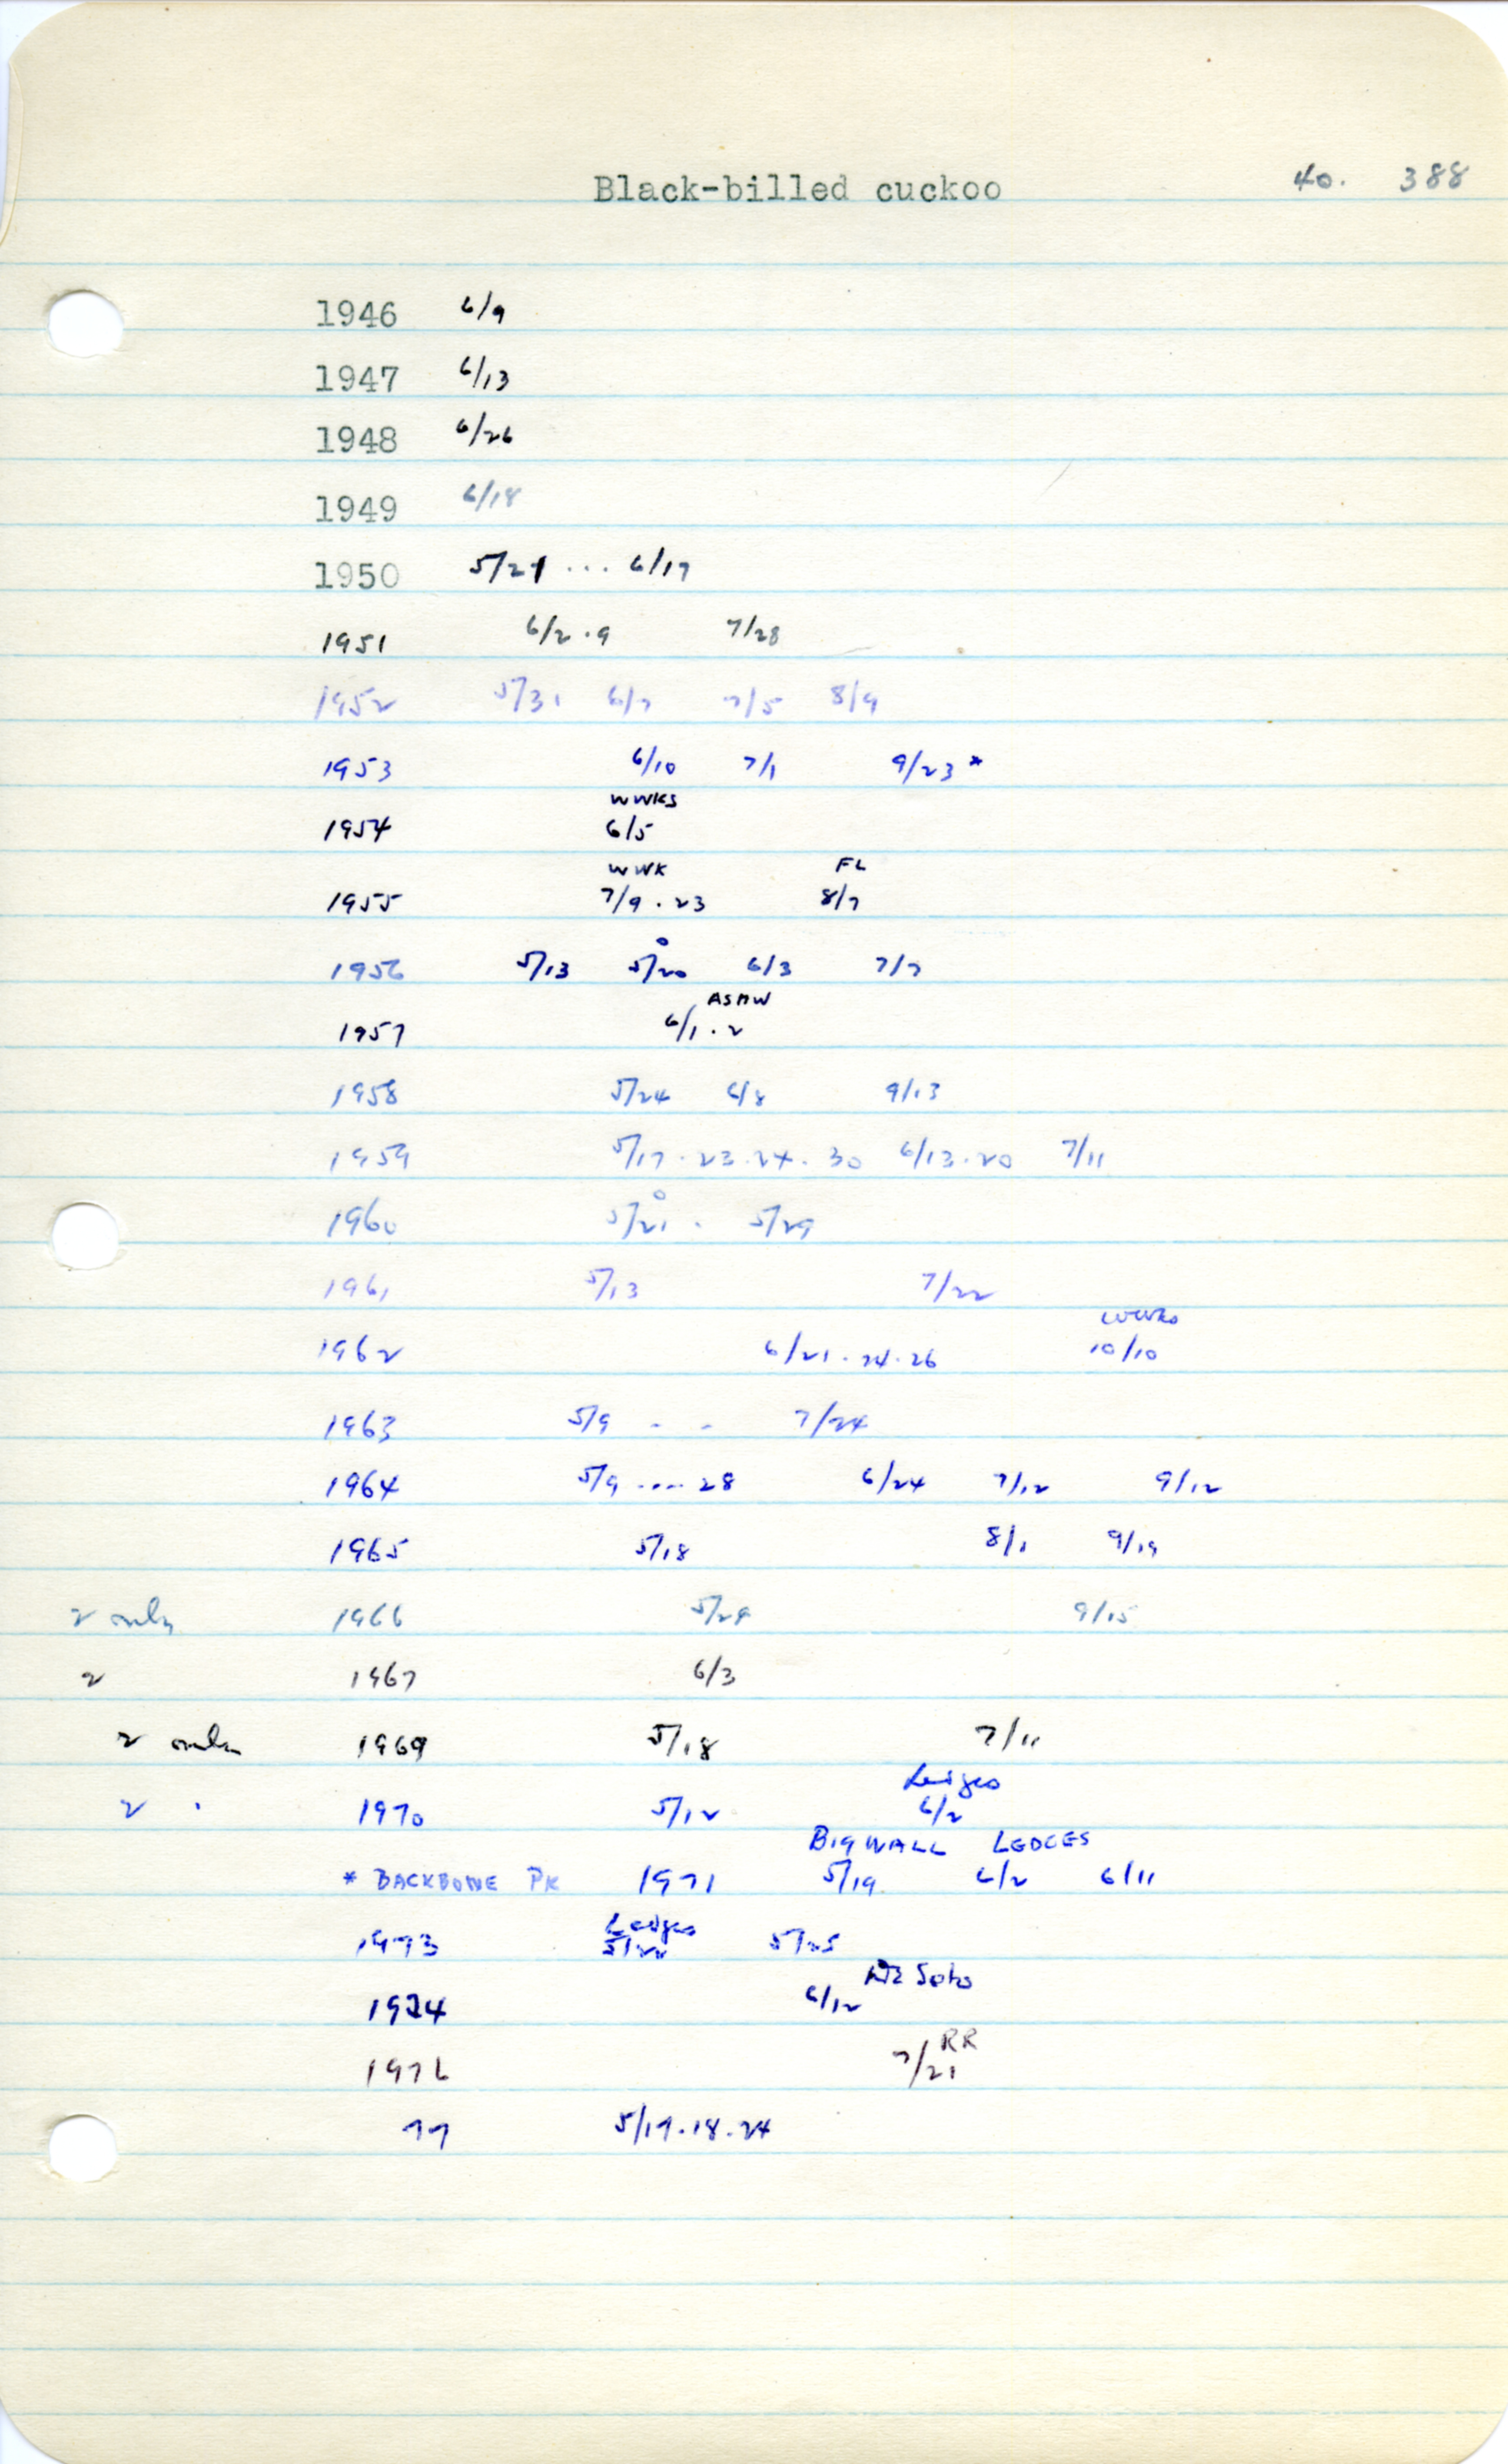 Black-billed cuckoo 40. 388
1946 6/9
1947 6/13
1948 6/26
1949 6/18
1950 5/21 ... 6/17
1951 6/2 . 9 7/28
1952 5/31 6/7 7/5 8/9
1953 6/10 7/1 9/23 *
WWKS
1954 6/5
WWK FL
1955 7/9 . 23 8/7
1956 5/13 5/20 6/3 7/7
ASMW
1957 6/1 . 2
1958 5/24 6/8 9/13
1959 5/17 . 23 . 24 . 30 6/13 . 20 7/11
1960 5/21 . 5/29
1961 5/13 7/22
1962 6/21 . 24 . 26 10/10
1963 5/9 - - 7/24
1964 5/9 .... 28 6/24 7/12 9/12
1965 5/18 8/1 9/19
2 only 1966 5/29 9/15
2 1967 6/3
2 only 1969 5/18 7/11
Ledges
2 " 1970 5/12 6/2
BIGWALL LEDGES
* BACKBONE PK 1971 5/19 6/2 6/11
Ledges
1973 5/22 5/25
De Soto
1974 6/12
RR
1976 7/21
77 5/17 . 18 . 24